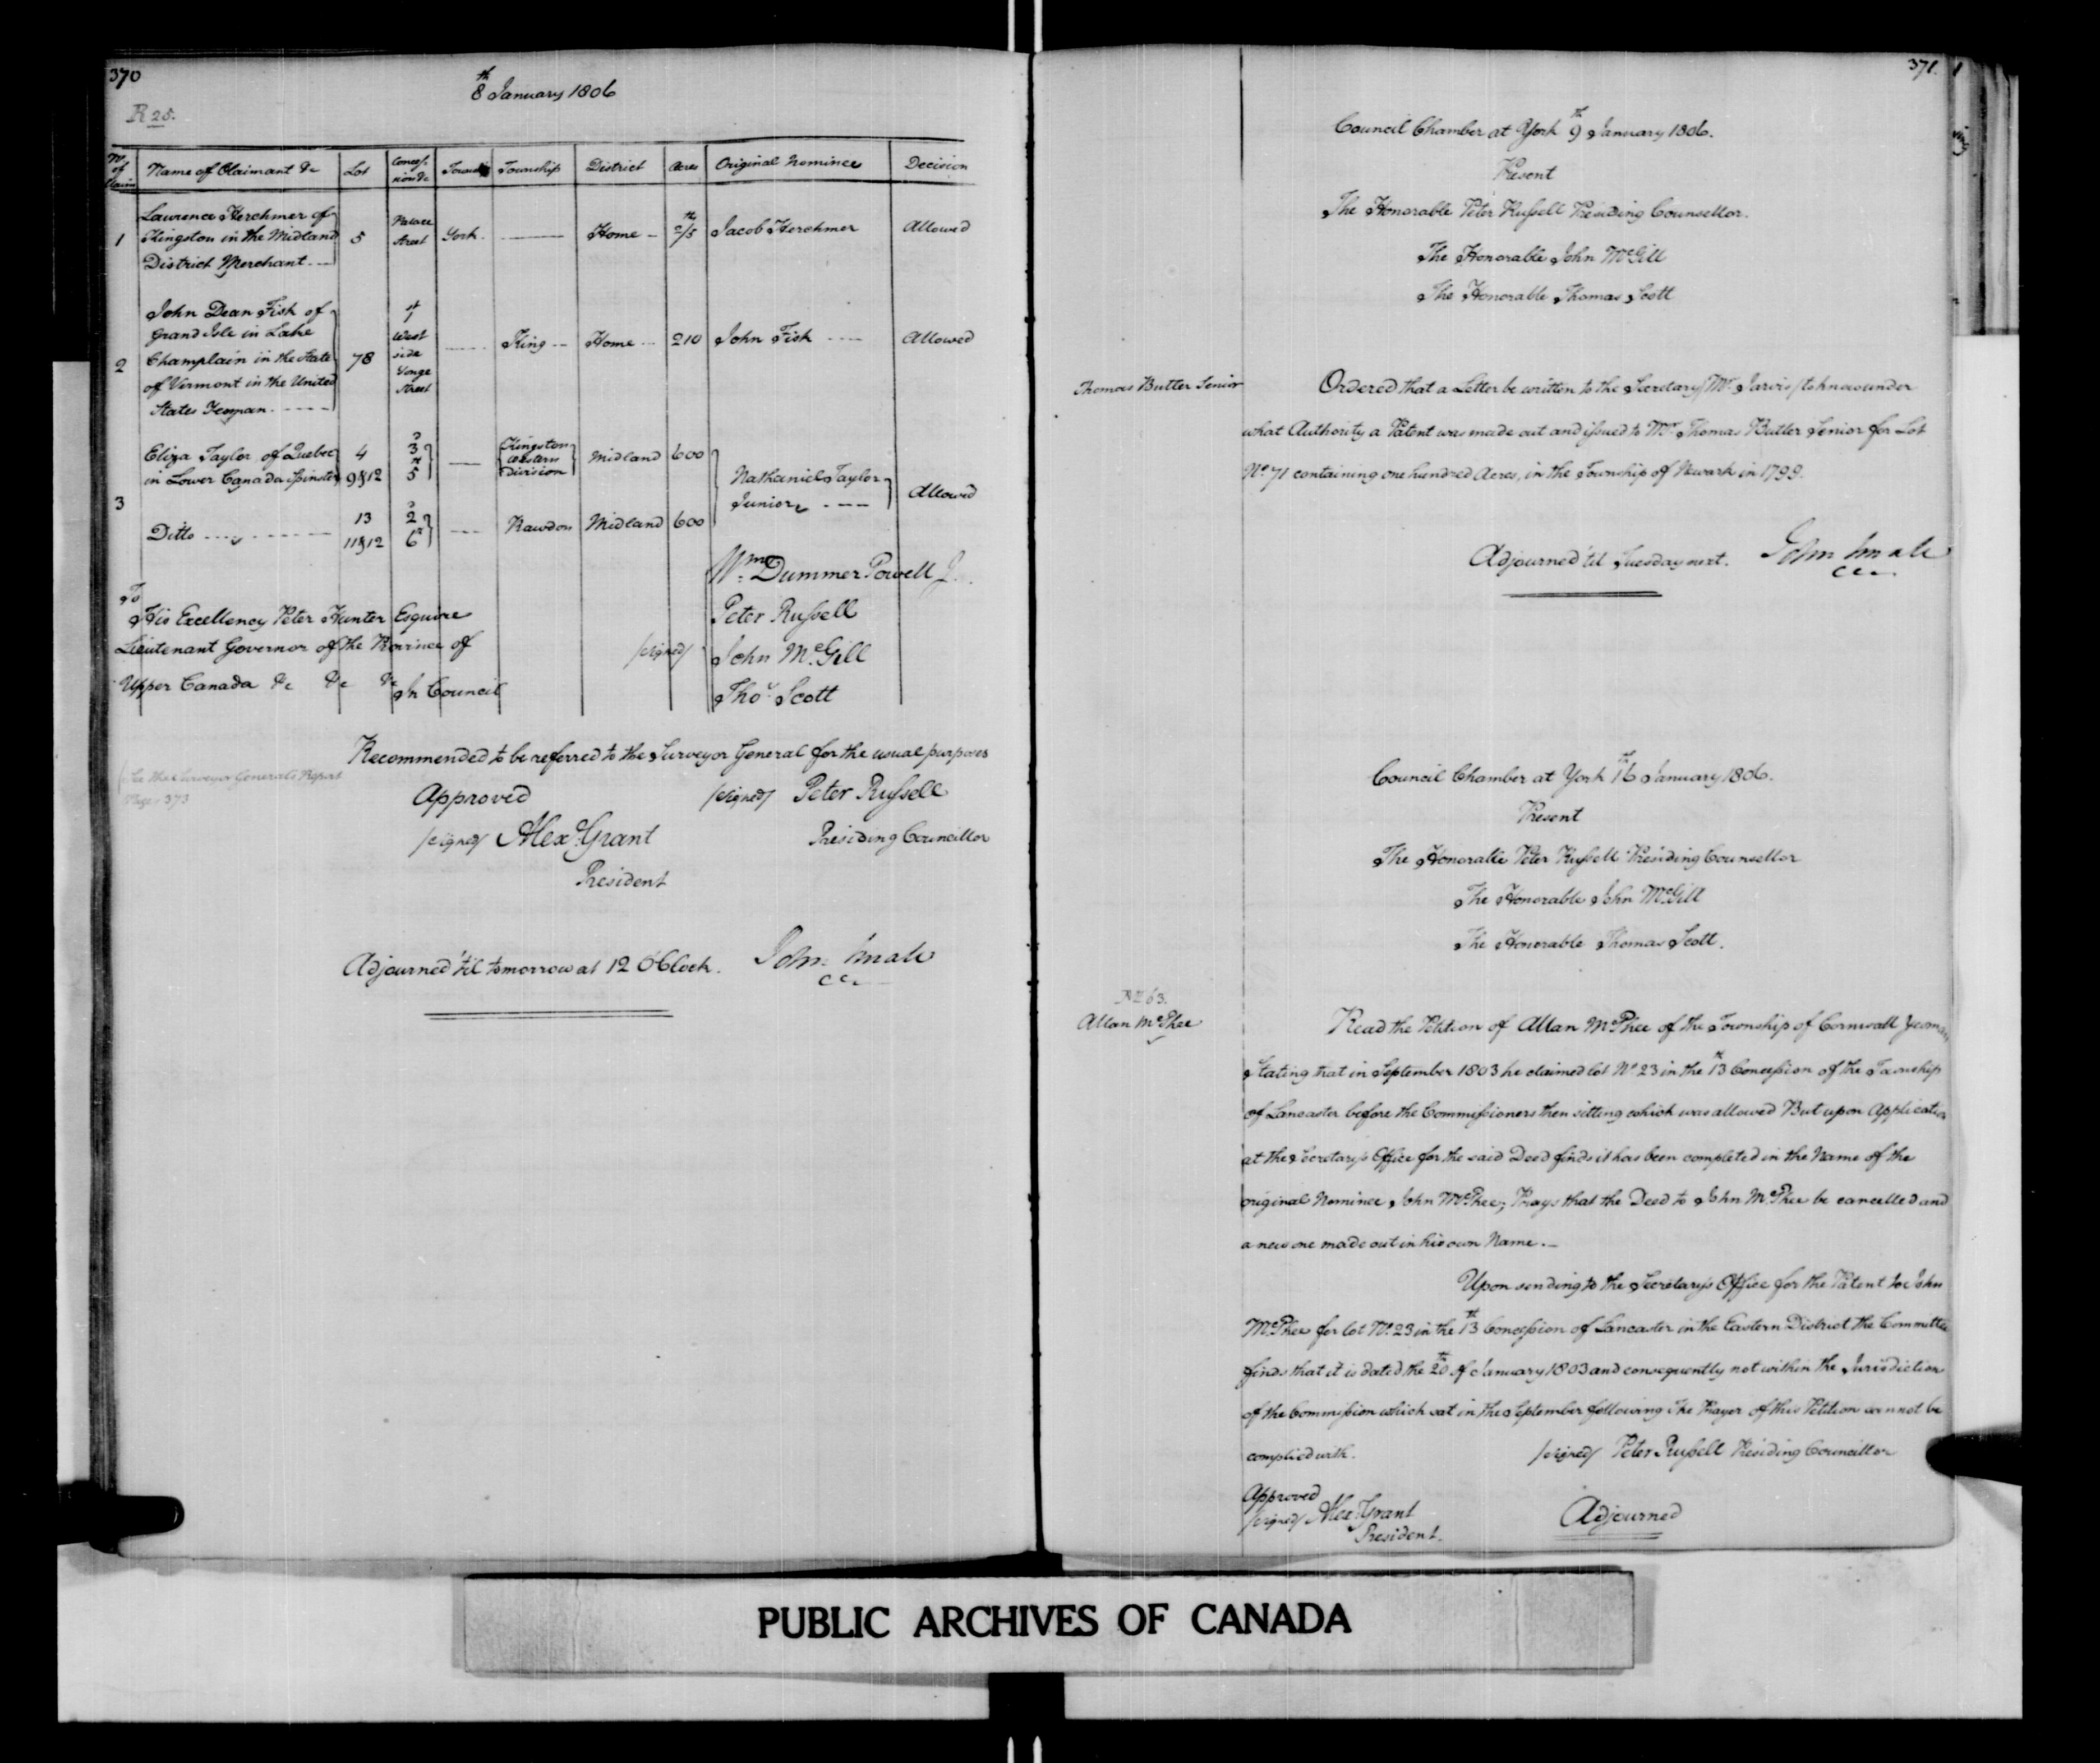 370
8th January 1806
R 25.
No. of Claim | Name of Claimant &c | Lot | Concession &c | Town | Township | District | Acres | Original Nominee | Decision
1 | Lawrence Herchmer of Kingston in the Midland District Merchant | 5 | Palace Street | York | —— | Home | 2/5th | Jacob Herchmer | Allowed
2 | John Dean Fisk of Grand Isle in Lake Champlain in the State of Vermont in the United States Yeoman | 78 | 1st West side Yonge Street | —— | King | Home | 210 | John Fisk | Allowed
3 | Eliza Taylor of Quebec in Lower Canada Spinster | 4 | 3d | —— | Kingston Western Division | Midland | 600 | Nathaniel Taylor Junior | Allowed
9 & 12 | 5th
Ditto | 13 | 2d | —— | Rawdon | Midland | 600
11 & 12 | 6th
Wm. Dummer Powell J.
To
His Excellency Peter Hunter Esquire
Peter Russell
Lieutenant Governor of the Province of
/signed/ John McGill
Upper Canada &c &c &c In Council
Thos. Scott
Recommended to be referred to the Surveyor General for the usual purposes
See the Surveyor Generals Report
Page 373
Approved
/signed/ Peter Russell
/signed/ Alexr. Grant
Presiding Councillor
President
Adjourned 'til tomorrow at 12 O'Clock. John Small
C C.
371.
Council Chamber at York 9th January 1806.
Present
The Honorable Peter Russell Presiding Counsellor.
The Honorable John McGill
The Honorable Thomas Scott
Thomas Butler Senior
Ordered that a Letter be written to the Secretary /Mr. Jarvis/ to know under
what Authority a Patent was made out and issued to Mr. Thomas Butler Senior for Lot
No. 71 containing one hundred Acres, in the Township of Newark in 1799.
Adjourned 'til Tuesday next. John Small
C C.
Council Chamber at York 16th January 1806.
Present
The Honorable Peter Russell Presiding Counsellor
The Honorable John McGill
The Honorable Thomas Scott.
No. 63.
Allan McPhee
Read the Petition of Allan McPhee of the Township of Cornwall Yeoman
Stating that in September 1803 he claimed lot No. 23 in the 13th Concession of the Township
of Lancaster before the Commissioners then sitting which was allowed But upon Application
at the Secretary's Office for the said Deed finds it has been completed in the Name of the
original Nominee John McPhee; Prays that the Deed to John McPhee be cancelled and
a new one made out in his own Name.—
Upon sending to the Secretary's Office for the Patent to John
McPhee for lot No. 23 in the 13th Concession of Lancaster in the Eastern District the Committee
finds that it is dated the 20th of January 1803 and consequently not within the Jurisdiction
of the Commission which sat in the September following The Prayer of this Petition cannot be
complied with.
/signed/ Peter Russell Presiding Councillor
Approved
/signed/ Alexr. Grant
President.
Adjourned
PUBLIC ARCHIVES OF CANADA